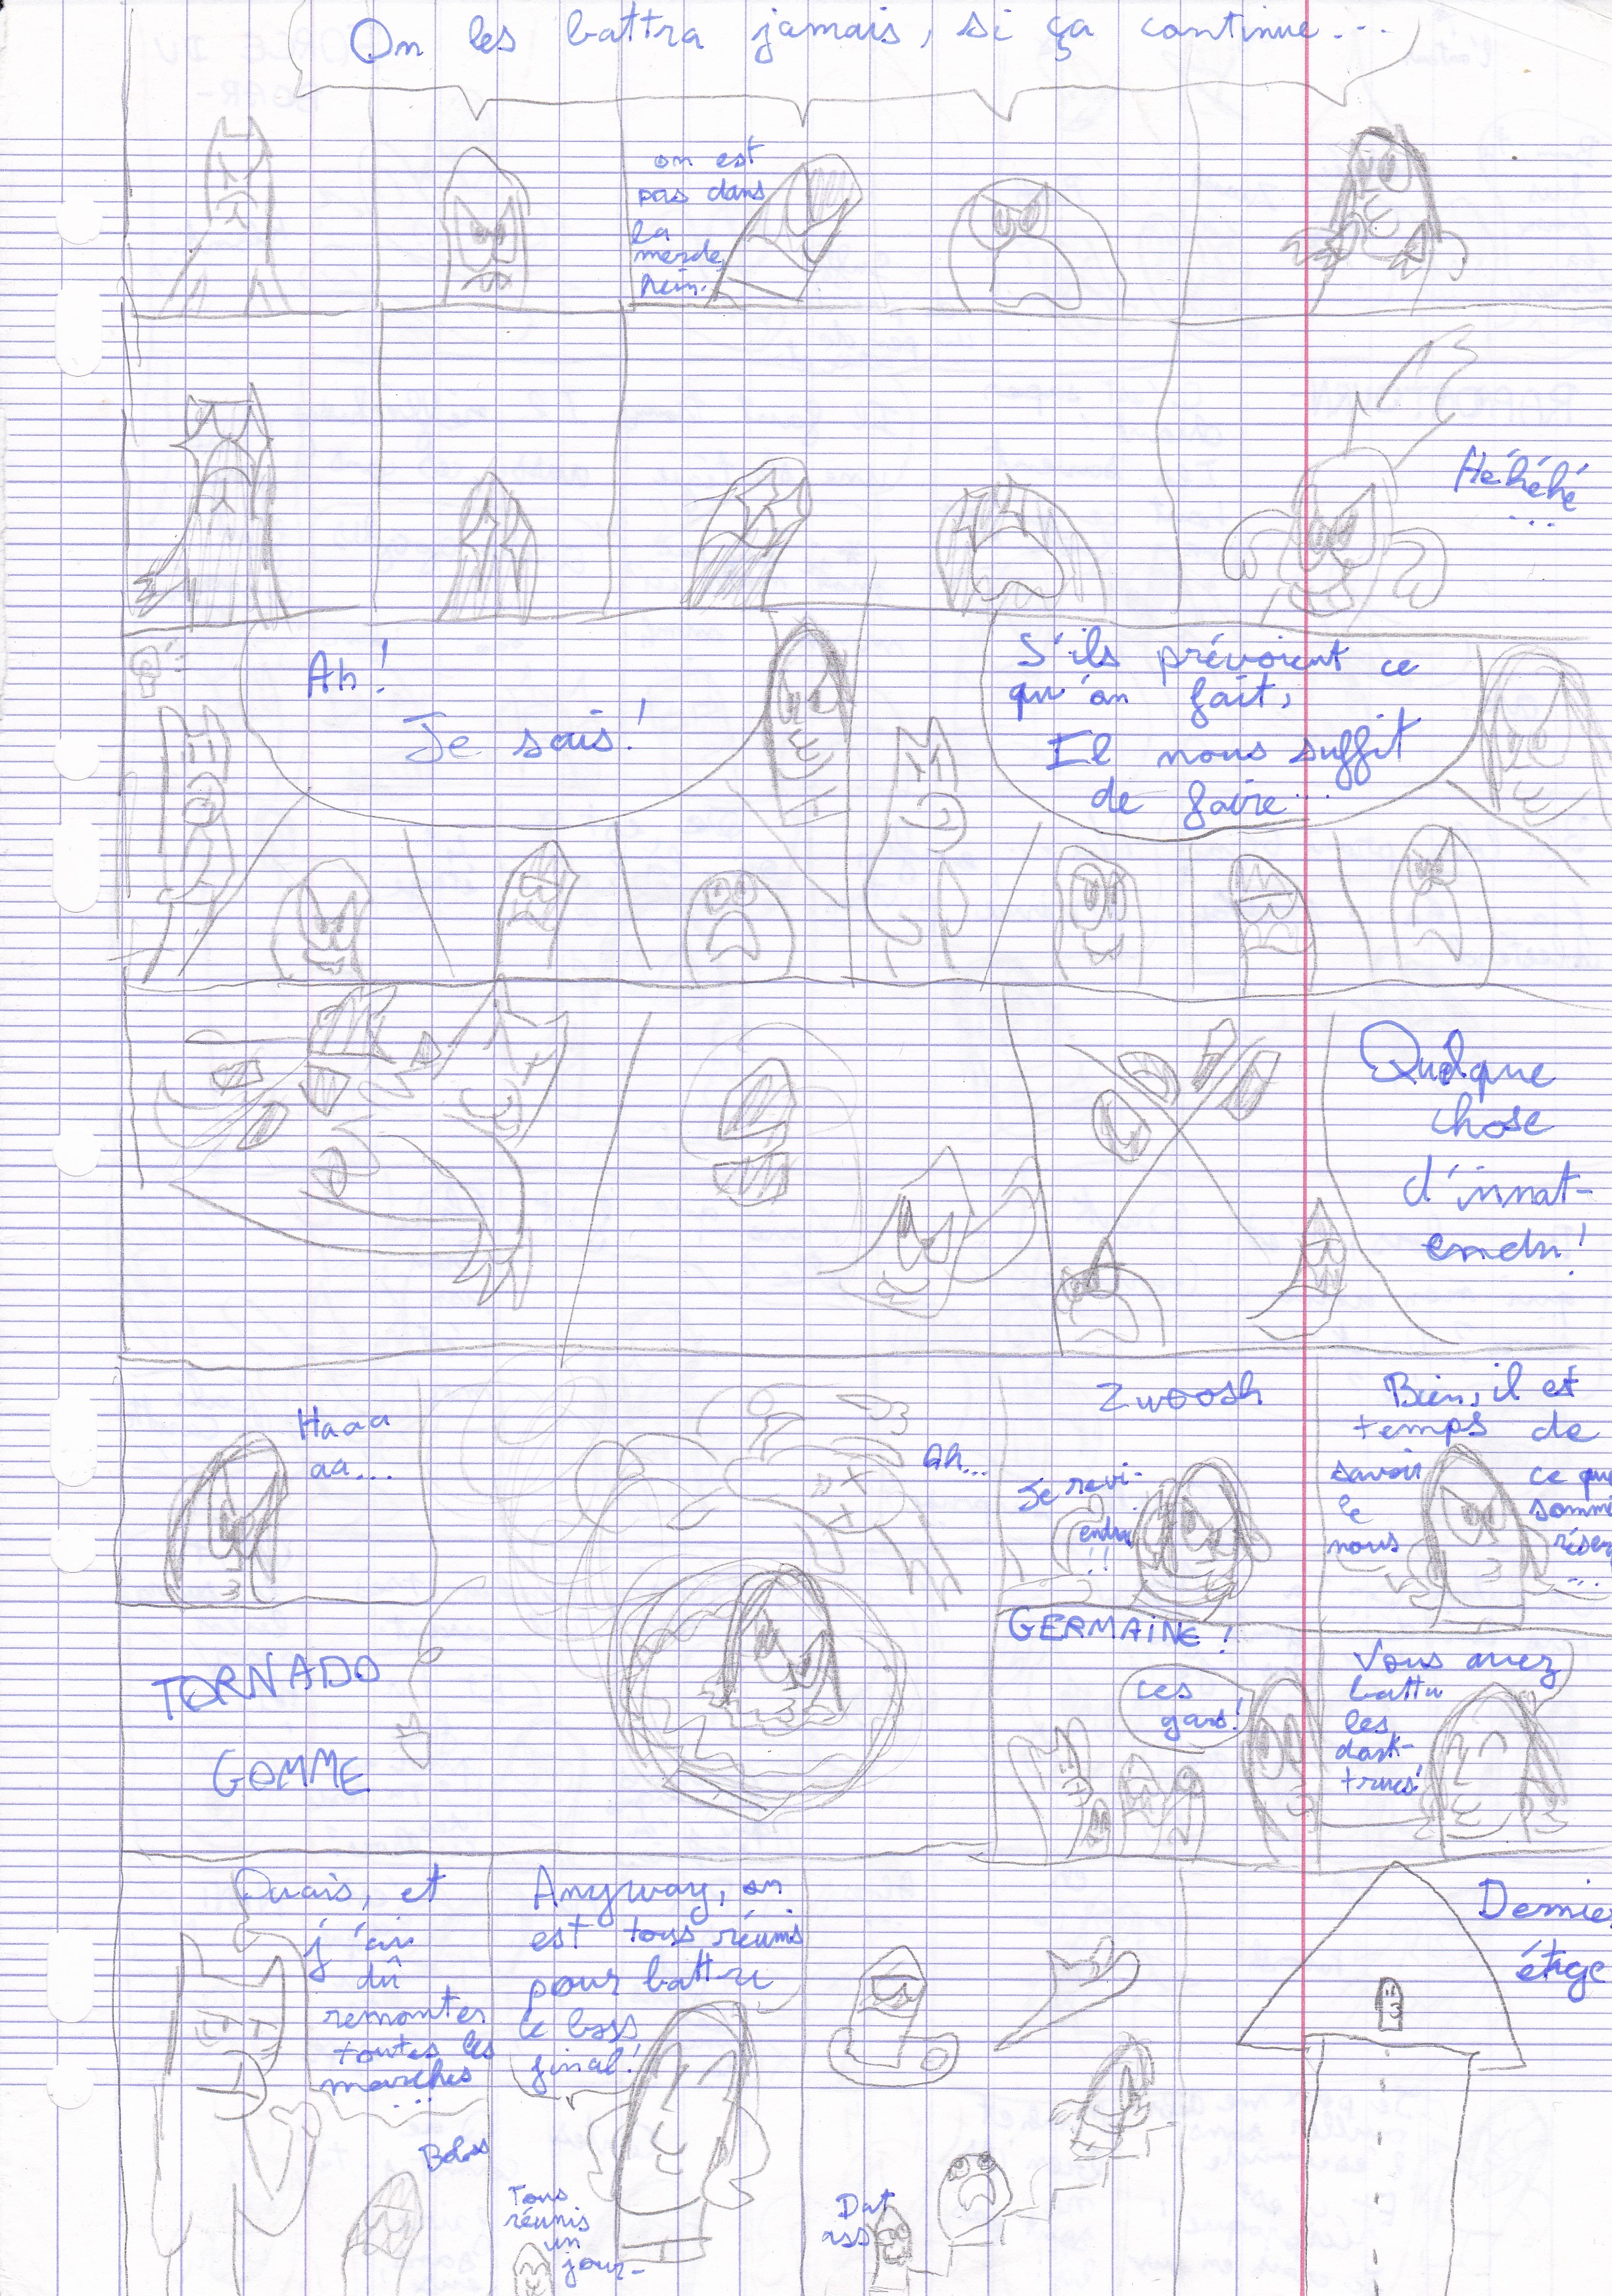 On les battra jamais, si ça continue...
on est
pas dans
la
merde,
hein.
Héhéhé
...
Ah!
Je sais!
S'ils prévoient ce
qu'on fait,
Il nous suffit
de faire...
Quelque
chose
d'innat-
endu!
Haaa
aa...
Ah...
TORNADO
GOMME
Zwoosh
Je revi-
endrai
!!
Bien, il est
temps de
savoir ce que
le sommi
nous réser
...
GERMAINE!
ces
gars!
Vous avez
battu
les
dark-
trucs!
Ouais, et
j'ai
dû
remonter
toutes les
marches
...
Boloss
Anyway, on
est tous réunis
pour battre
le boss
final!
Tous
réunis
un
jour-
Dat
ass
Dernier
étage